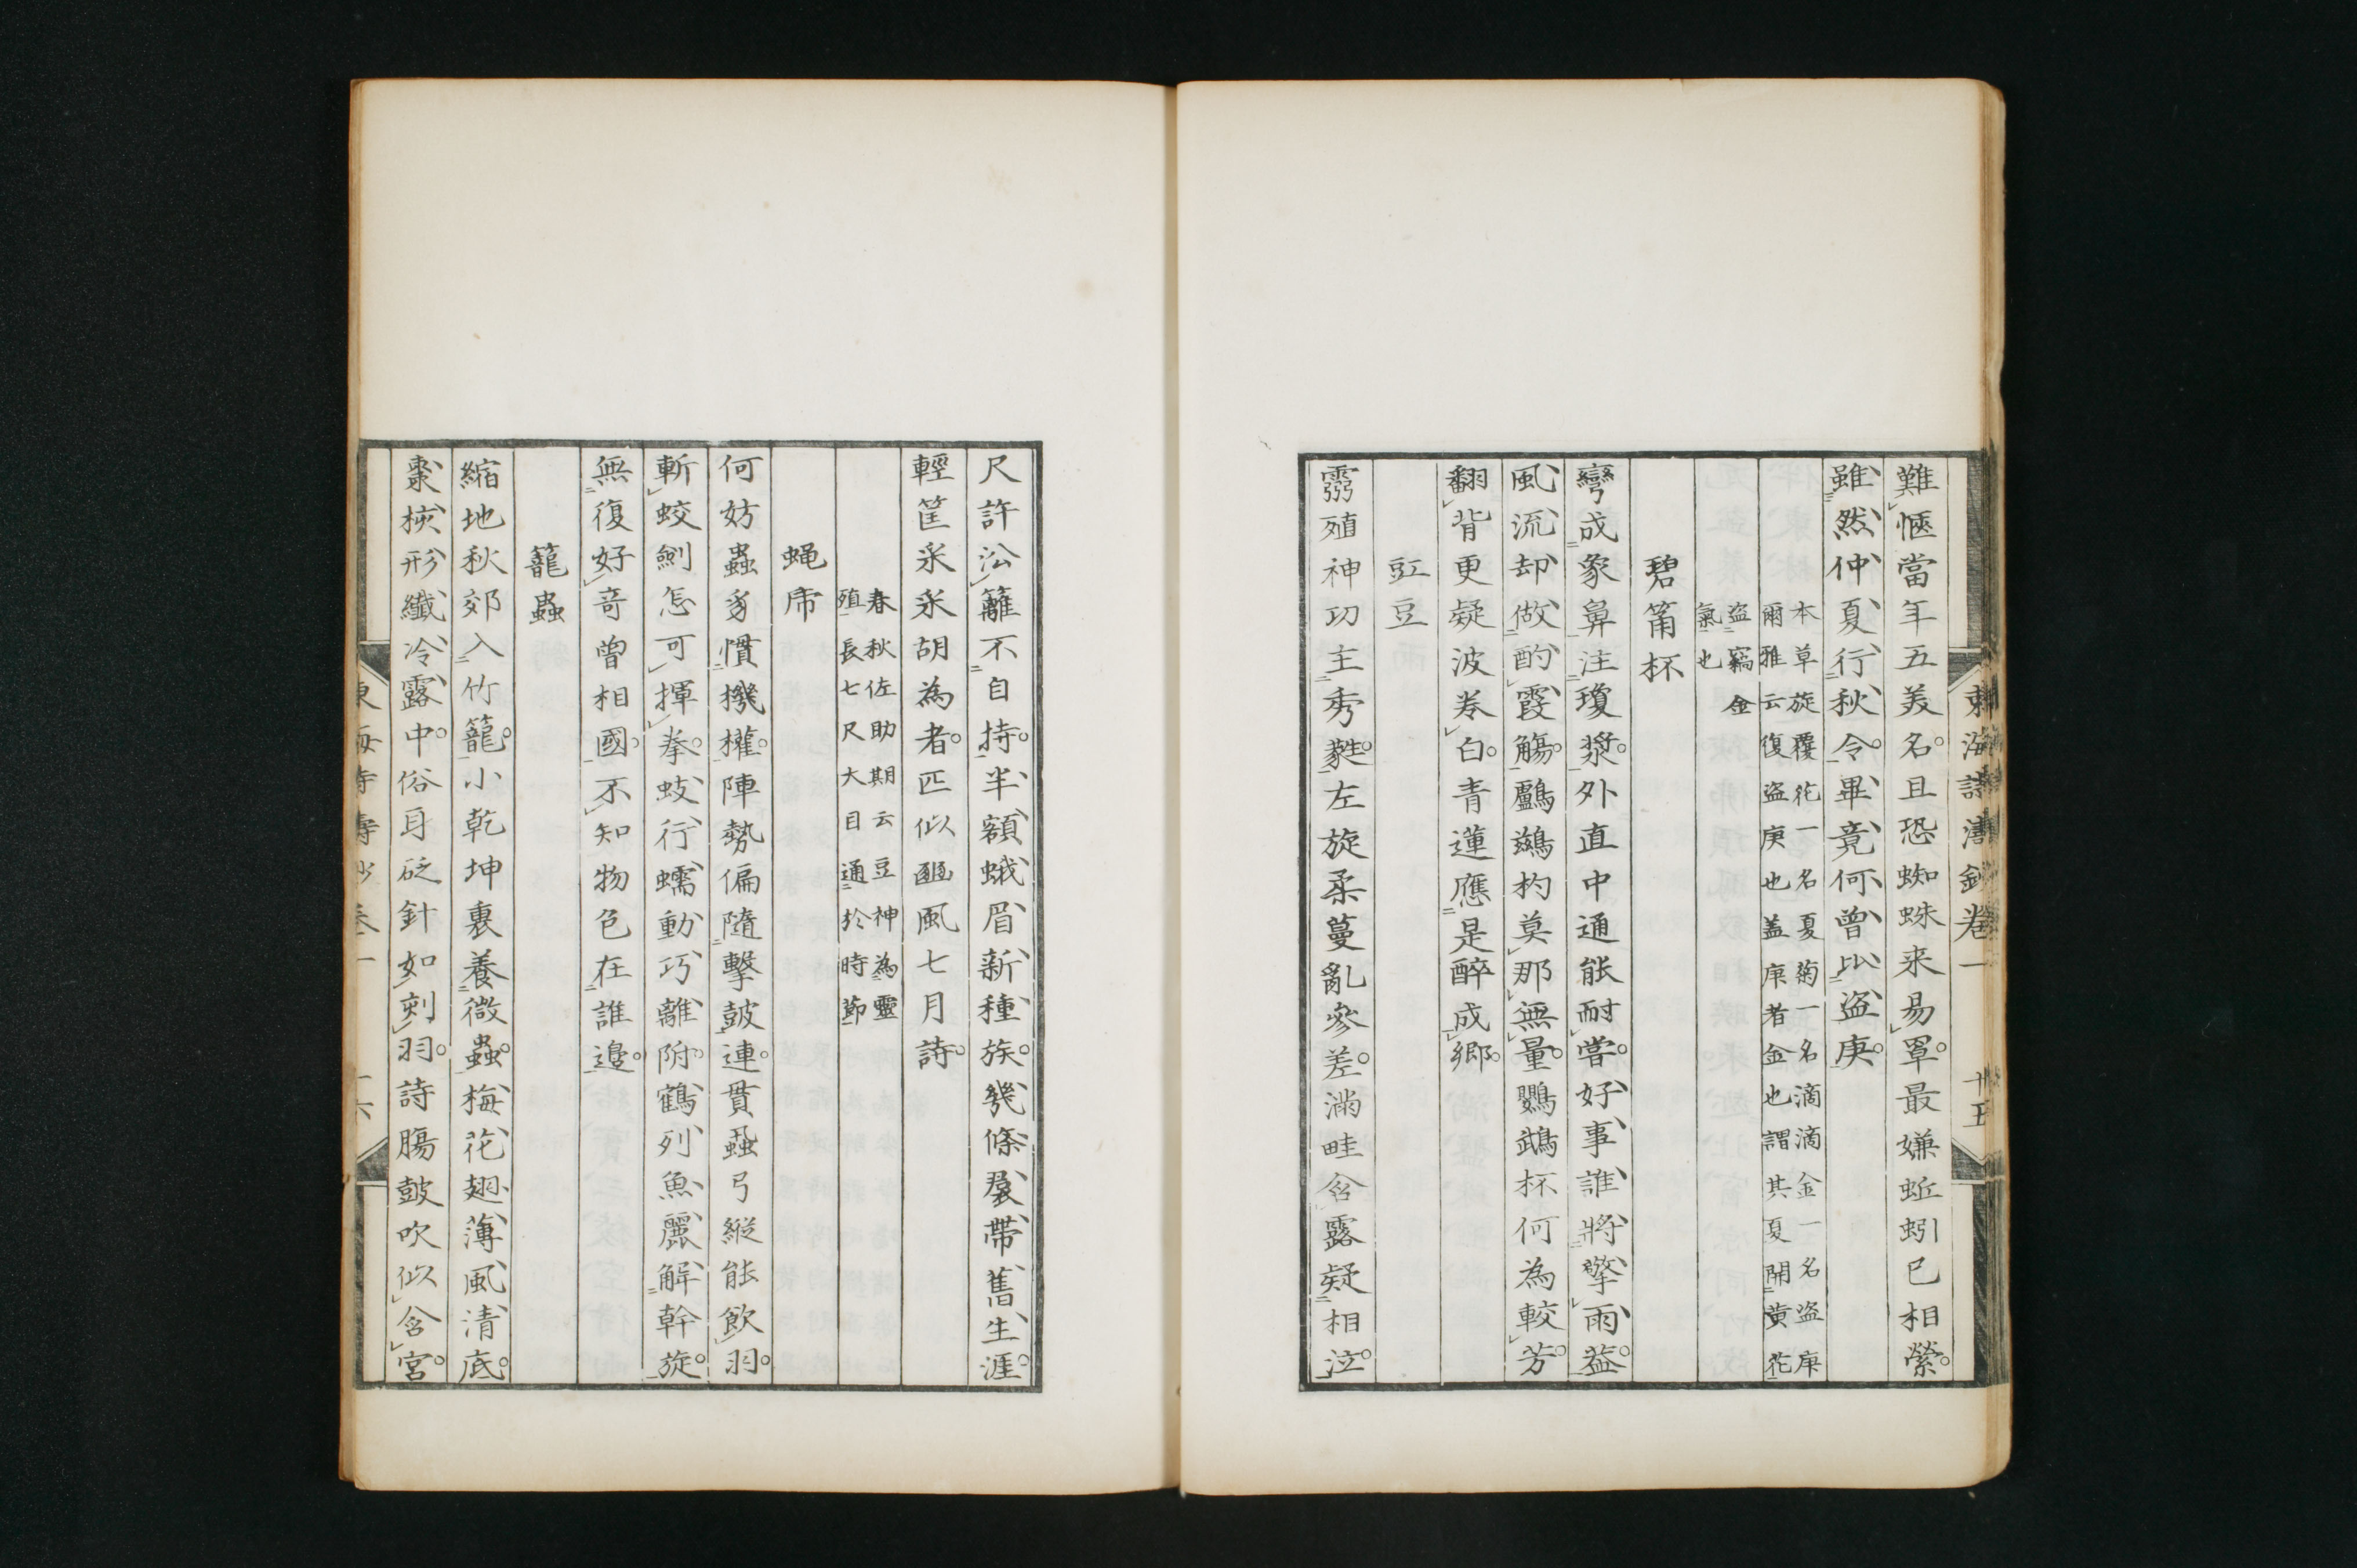 難愜當年五美名且恐蜘蛛来易罩最嫌蚯蚓已相縈
雖然仲夏行秋令畢竟何曾比盗庚
本草旋覆花一名夏菊一名滴滴金一名盗庚
爾雅云復盗庚也盖庚者金也謂其夏開黄花
盗竊金
氣也
碧筩杯
彎成象鼻注瓊漿外直中通能耐嘗好事誰將擎雨葢
風流却做酌霞觴鸕鷀杓莫那無量鸚鵡杯何為較芳
翻背更疑波卷白青蓮應是醉成鄉
豇豆
霛殖神功主秀蕤左旋柔蔓亂參差滿畦含露疑相泣
東海詩濤鈔卷一
十五
尺許㳂籬不自持半額蛾眉新種族幾條裠帶舊生涯
輕筐采采胡為者匹似豳風七月詩
春秋佐助期云豆神為靈
殖長七尺大目通於時節
蝇帍
何妨蟲豸慣機權陣勢偏隨擊鼓連貫蝨弓縱能飲羽
斬蛟劍怎可揮拳蚑行蠕動巧離附鶴列魚麗解幹旋
無復好奇曽相國不知物色在誰邊
籠蟲
縮地秋郊入竹籠小乾坤裏養微蟲梅花翅薄風清底
棗核形纖冷露中俗耳砭針如刻羽詩膓鼓吹似含宮